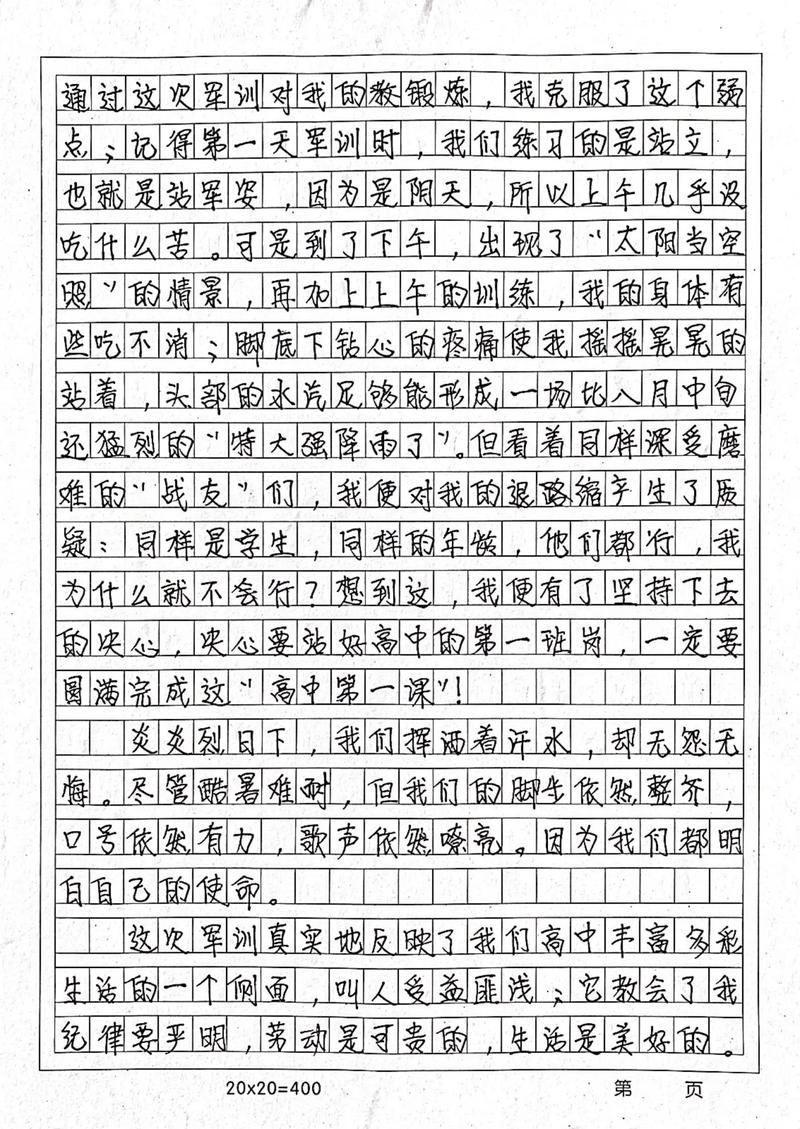 通过这次军训对我的教锻炼，我克服了这个弱
点；记得第一天军训时，我们练习的是站立，
也就是站军姿，因为是阴天，所以上午几乎没
吃什么苦。可是到了下午，出现了“太阳当空
照”的情景，再加上上午的训练，我的身体有
些吃不消；脚底下钻心的疼痛使我摇摇晃晃的
站着，头部的水汽足够能形成一场比八月中旬
还猛烈的“特大强降雨了”。但看着同样深受磨
难的“战友”们，我便对我的退路缩产生了质
疑：同样是学生，同样的年龄，他们都行，我
为什么就不会行？想到这，我便有了坚持下去
的决心，决心要站好高中的第一班岗，一定要
圆满完成这“高中第一课”！
炎炎烈日下，我们挥洒着汗水，却无怨无
悔。尽管酷暑难耐，但我们的脚步依然整齐，
口号依然有力，歌声依然嘹亮。因为我们都明
白自己的使命。
这次军训真实地反映了我们高中丰富多彩
生活的一个侧面，叫人受益匪浅；它教会了我
纪律要严明，劳动是可贵的，生活是美好的。
20x20=400 第 页